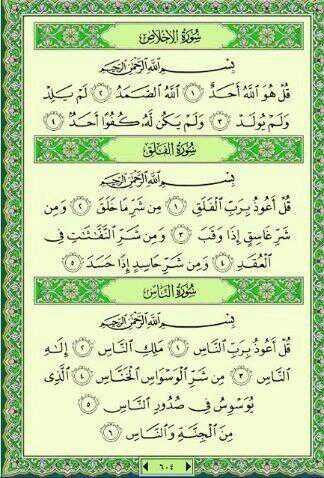 سُورَةُ الإِخْلَاصِ
بِسْمِ اللَّهِ الرَّحْمَٰنِ الرَّحِيمِ
قُلْ هُوَ اللَّهُ أَحَدٌ ١ اللَّهُ الصَّمَدُ ٢ لَمْ يَلِدْ
وَلَمْ يُولَدْ ٣ وَلَمْ يَكُن لَّهُ كُفُوًا أَحَدٌ ٤
سُورَةُ الْفَلَقِ
بِسْمِ اللَّهِ الرَّحْمَٰنِ الرَّحِيمِ
قُلْ أَعُوذُ بِرَبِّ الْفَلَقِ ١ مِن شَرِّ مَا خَلَقَ ٢ وَمِن
شَرِّ غَاسِقٍ إِذَا وَقَبَ ٣ وَمِن شَرِّ النَّفَّٰثَٰتِ فِي
الْعُقَدِ ٤ وَمِن شَرِّ حَاسِدٍ إِذَا حَسَدَ ٥
سُورَةُ النَّاسِ
بِسْمِ اللَّهِ الرَّحْمَٰنِ الرَّحِيمِ
قُلْ أَعُوذُ بِرَبِّ النَّاسِ ١ مَلِكِ النَّاسِ ٢ إِلَٰهِ
النَّاسِ ٣ مِن شَرِّ الْوَسْوَاسِ الْخَنَّاسِ ٤ الَّذِي
يُوَسْوِسُ فِي صُدُورِ النَّاسِ ٥
مِنَ الْجِنَّةِ وَالنَّاسِ ٦
٦٠٤